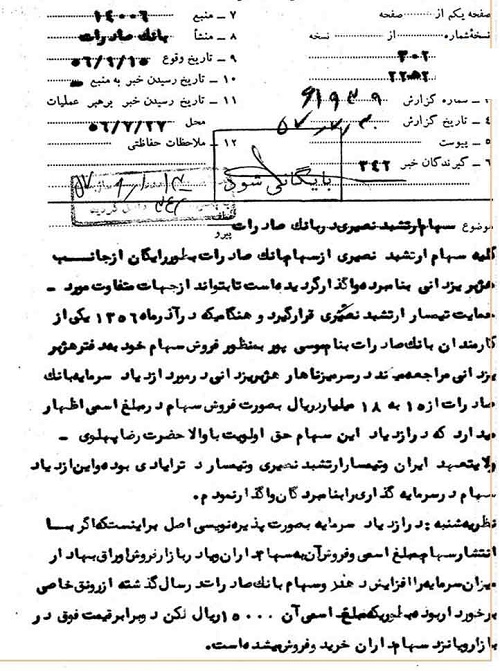 صفحه یکم از صفحه
نسخه شماره از نسخه
۳۰۲
۲۲۵۲
۳ - شماره گزارش ۶۱۹۳۹
۴ - تاریخ گزارش
۵ - پیوست
۶ - گیرندگان خبر ۳۴۲
۷ - منبع ۱۴۰۰۶
۸ - منشأ بانک صادرات
۹ - تاریخ وقوع ۵۶/۹/۱۵
۱۰ - تاریخ رسیدن خبر به منبع
۱۱ - تاریخ رسیدن خبر برهبر عملیات
محل ۵۶/۷/۲۷
۱۲ - ملاحظات حفاظتی
بایگانی شود
موضوع سهام ارتشبد نصیری در بانک صادرات
پیرو
کلیه سهام ارتشبد نصیری از سهام بانک صادرات بطور رایگان از جانب
هژبر یزدانی بنامبرده واگذار گردیده است تا بتواند از جهات متفاوت مورد -
حمایت تیمسار ارتشبد نصیری قرار گیرد و هنگامیکه در آذر ماه ۱۳۵۶ یکی از
کارمندان بانک صادرات بنام موسی پور بمنظور فروش سهام خود به دفتر هژبر
یزدانی مراجعه میکند در سر میز ناهار هژبر یزدانی در مورد ازدیاد سرمایه بانک
صادرات از ۱۵ به ۱۸ میلیارد ریال بصورت فروش سهام در مبلغ اسمی اظهار
میدارد که در ازدیاد این سهام حق اولویت با والا حضرت رضا پهلوی -
ولایتعهد ایران و تیمسار ارتشبد نصیری و تیمسار دتر ایادی بوده و این ازدیاد
سهام در سرمایه گذاری را بنامبردگان واگذار نمودم.
نظریه شنبه : در ازدیاد سرمایه بصورت پذیره نویسی اصل بر اینستکه اگر با
انتشار سهام بمبلغ اسمی و فروش آن به سهامداران و یا در بازار فروش اوراق بهادار
میزان سرمایه را افزایش دهند و سهام بانک صادرات در سال گذشته از رونق خاصی
برخوردار بوده بطوریکه مبلغ اسمی آن ۱۵۰۰۰ ریال لکن دو برابر قیمت فوق در
بازار و یا نزد سهامداران خرید و فروش میشده است.